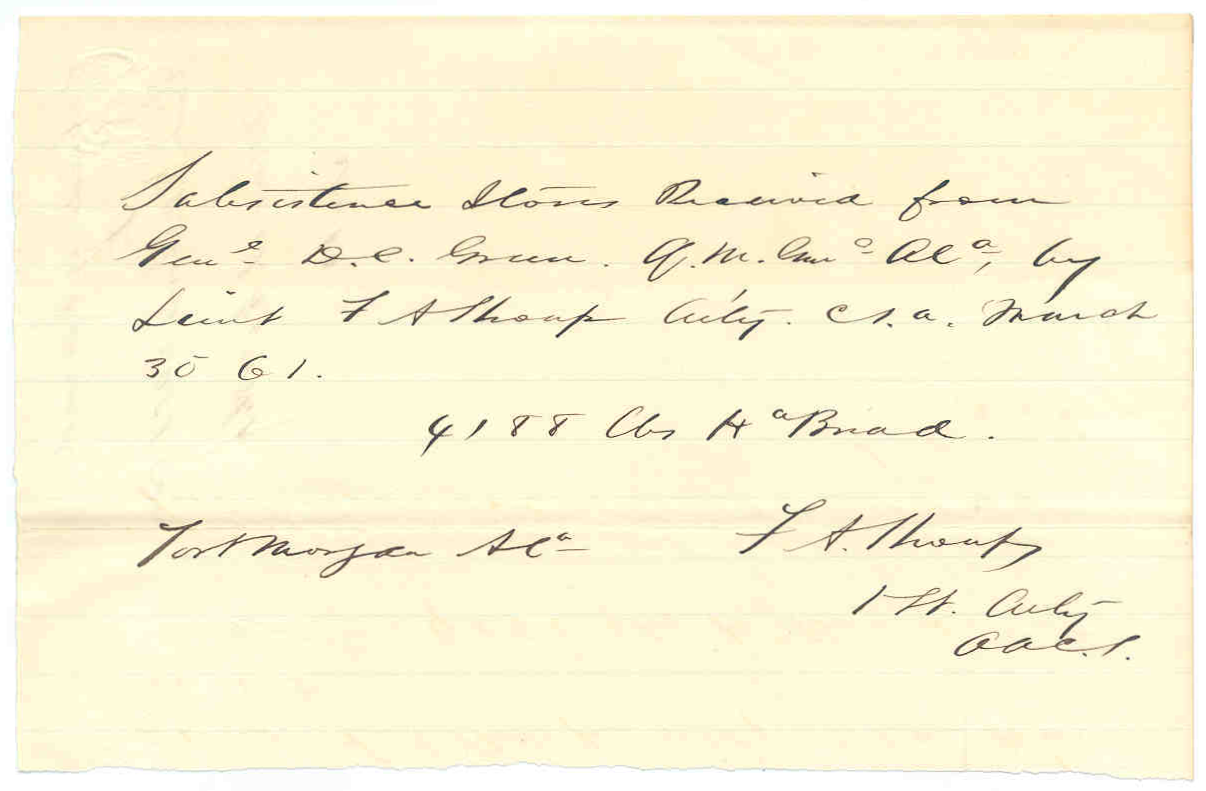 Subsistence Stores Received from
Genl D.C. Green. Q.M. Genl Ala, by
Lieut F A Shoup Arty. C.S.A. March
30 61.
4188 lbs Hd Bread.
Fort Morgan Ala
F A. Shoup
1 Lt. Arty
A A C.S.